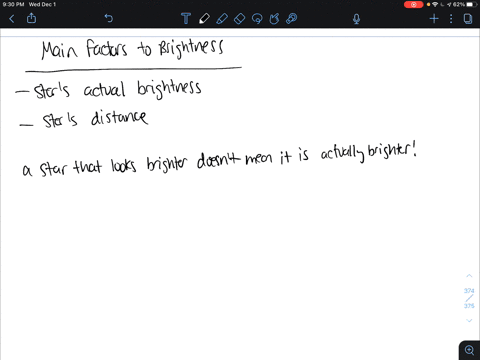 9:30 PM Wed Dec 1
62%
Main Factors to Brightness
- Star's actual brightness
- Star's distance
a star that looks brighter doesn't mean it is actually brighter!
374
375